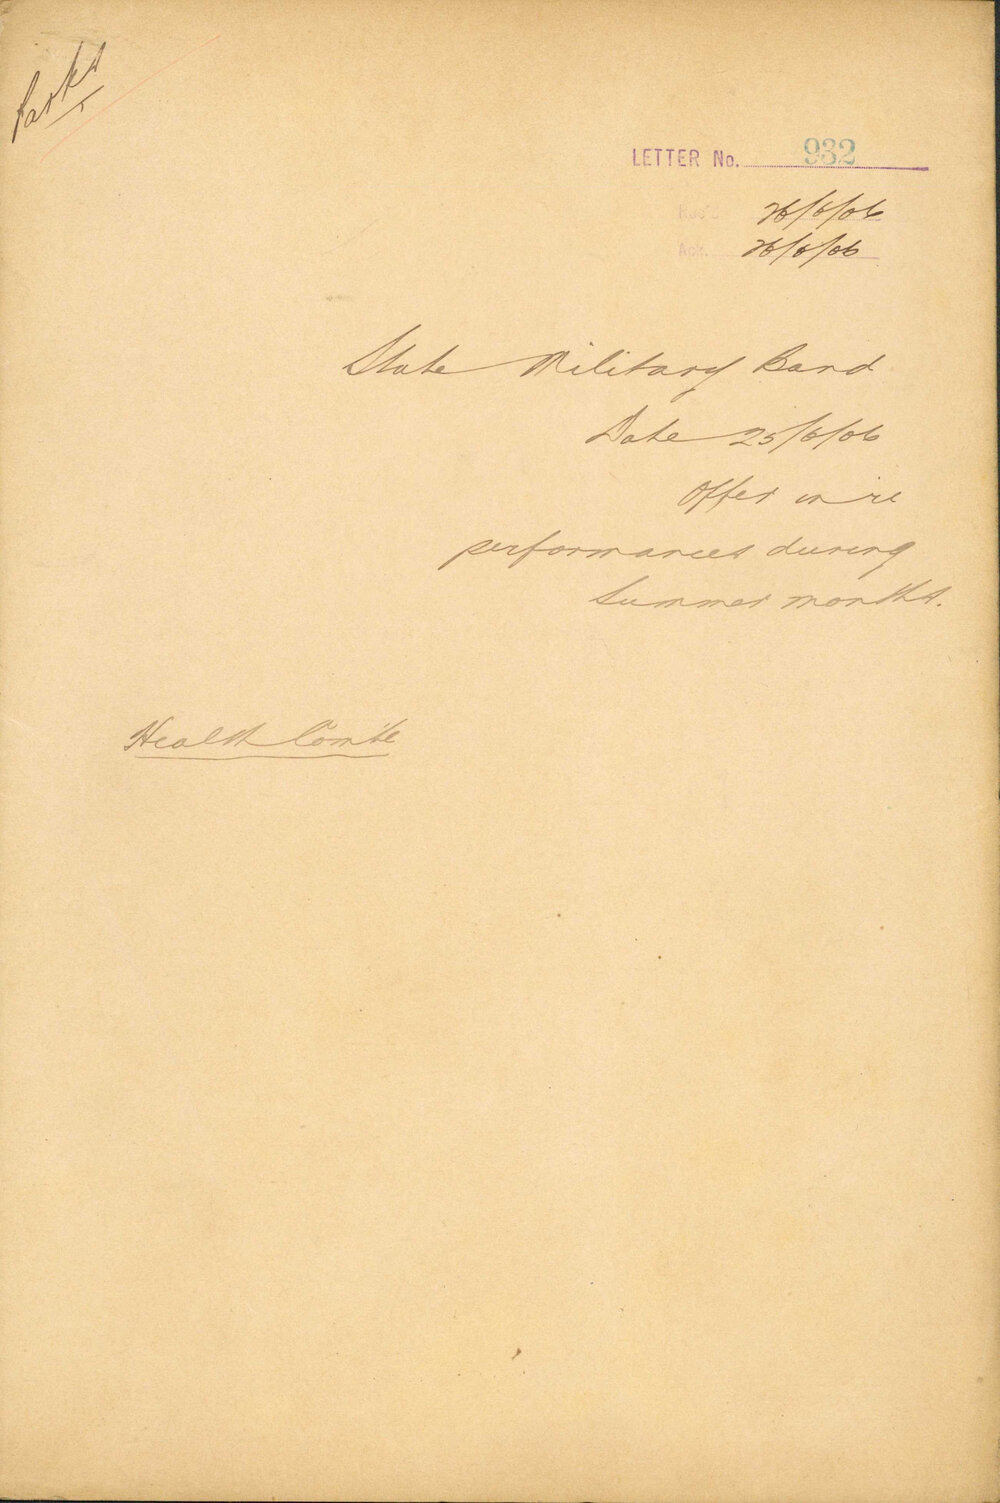 Parks
LETTER No. 932
Rec'd 26/6/06
Ack. 26/6/06
State Military Band
Date 25/6/06
Offer in re
performances during
Summer months.
Health Com'te